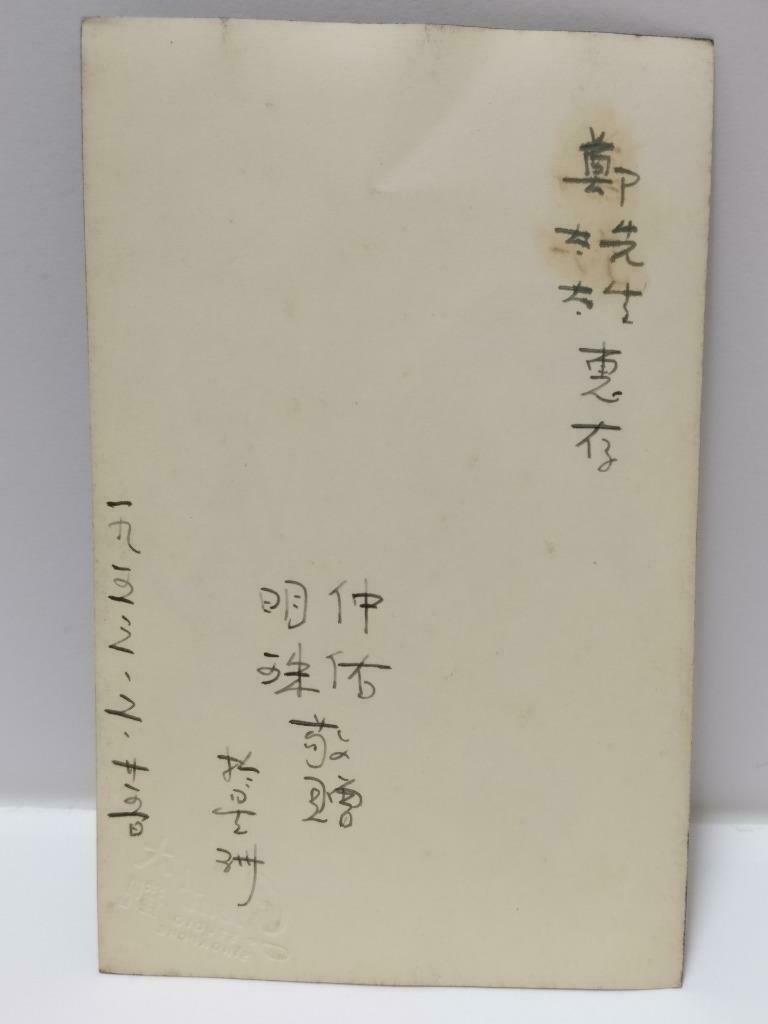 鄭先生太太惠存
仲佑
明珠
敬贈
於星洲
一九五二・二・廿五日